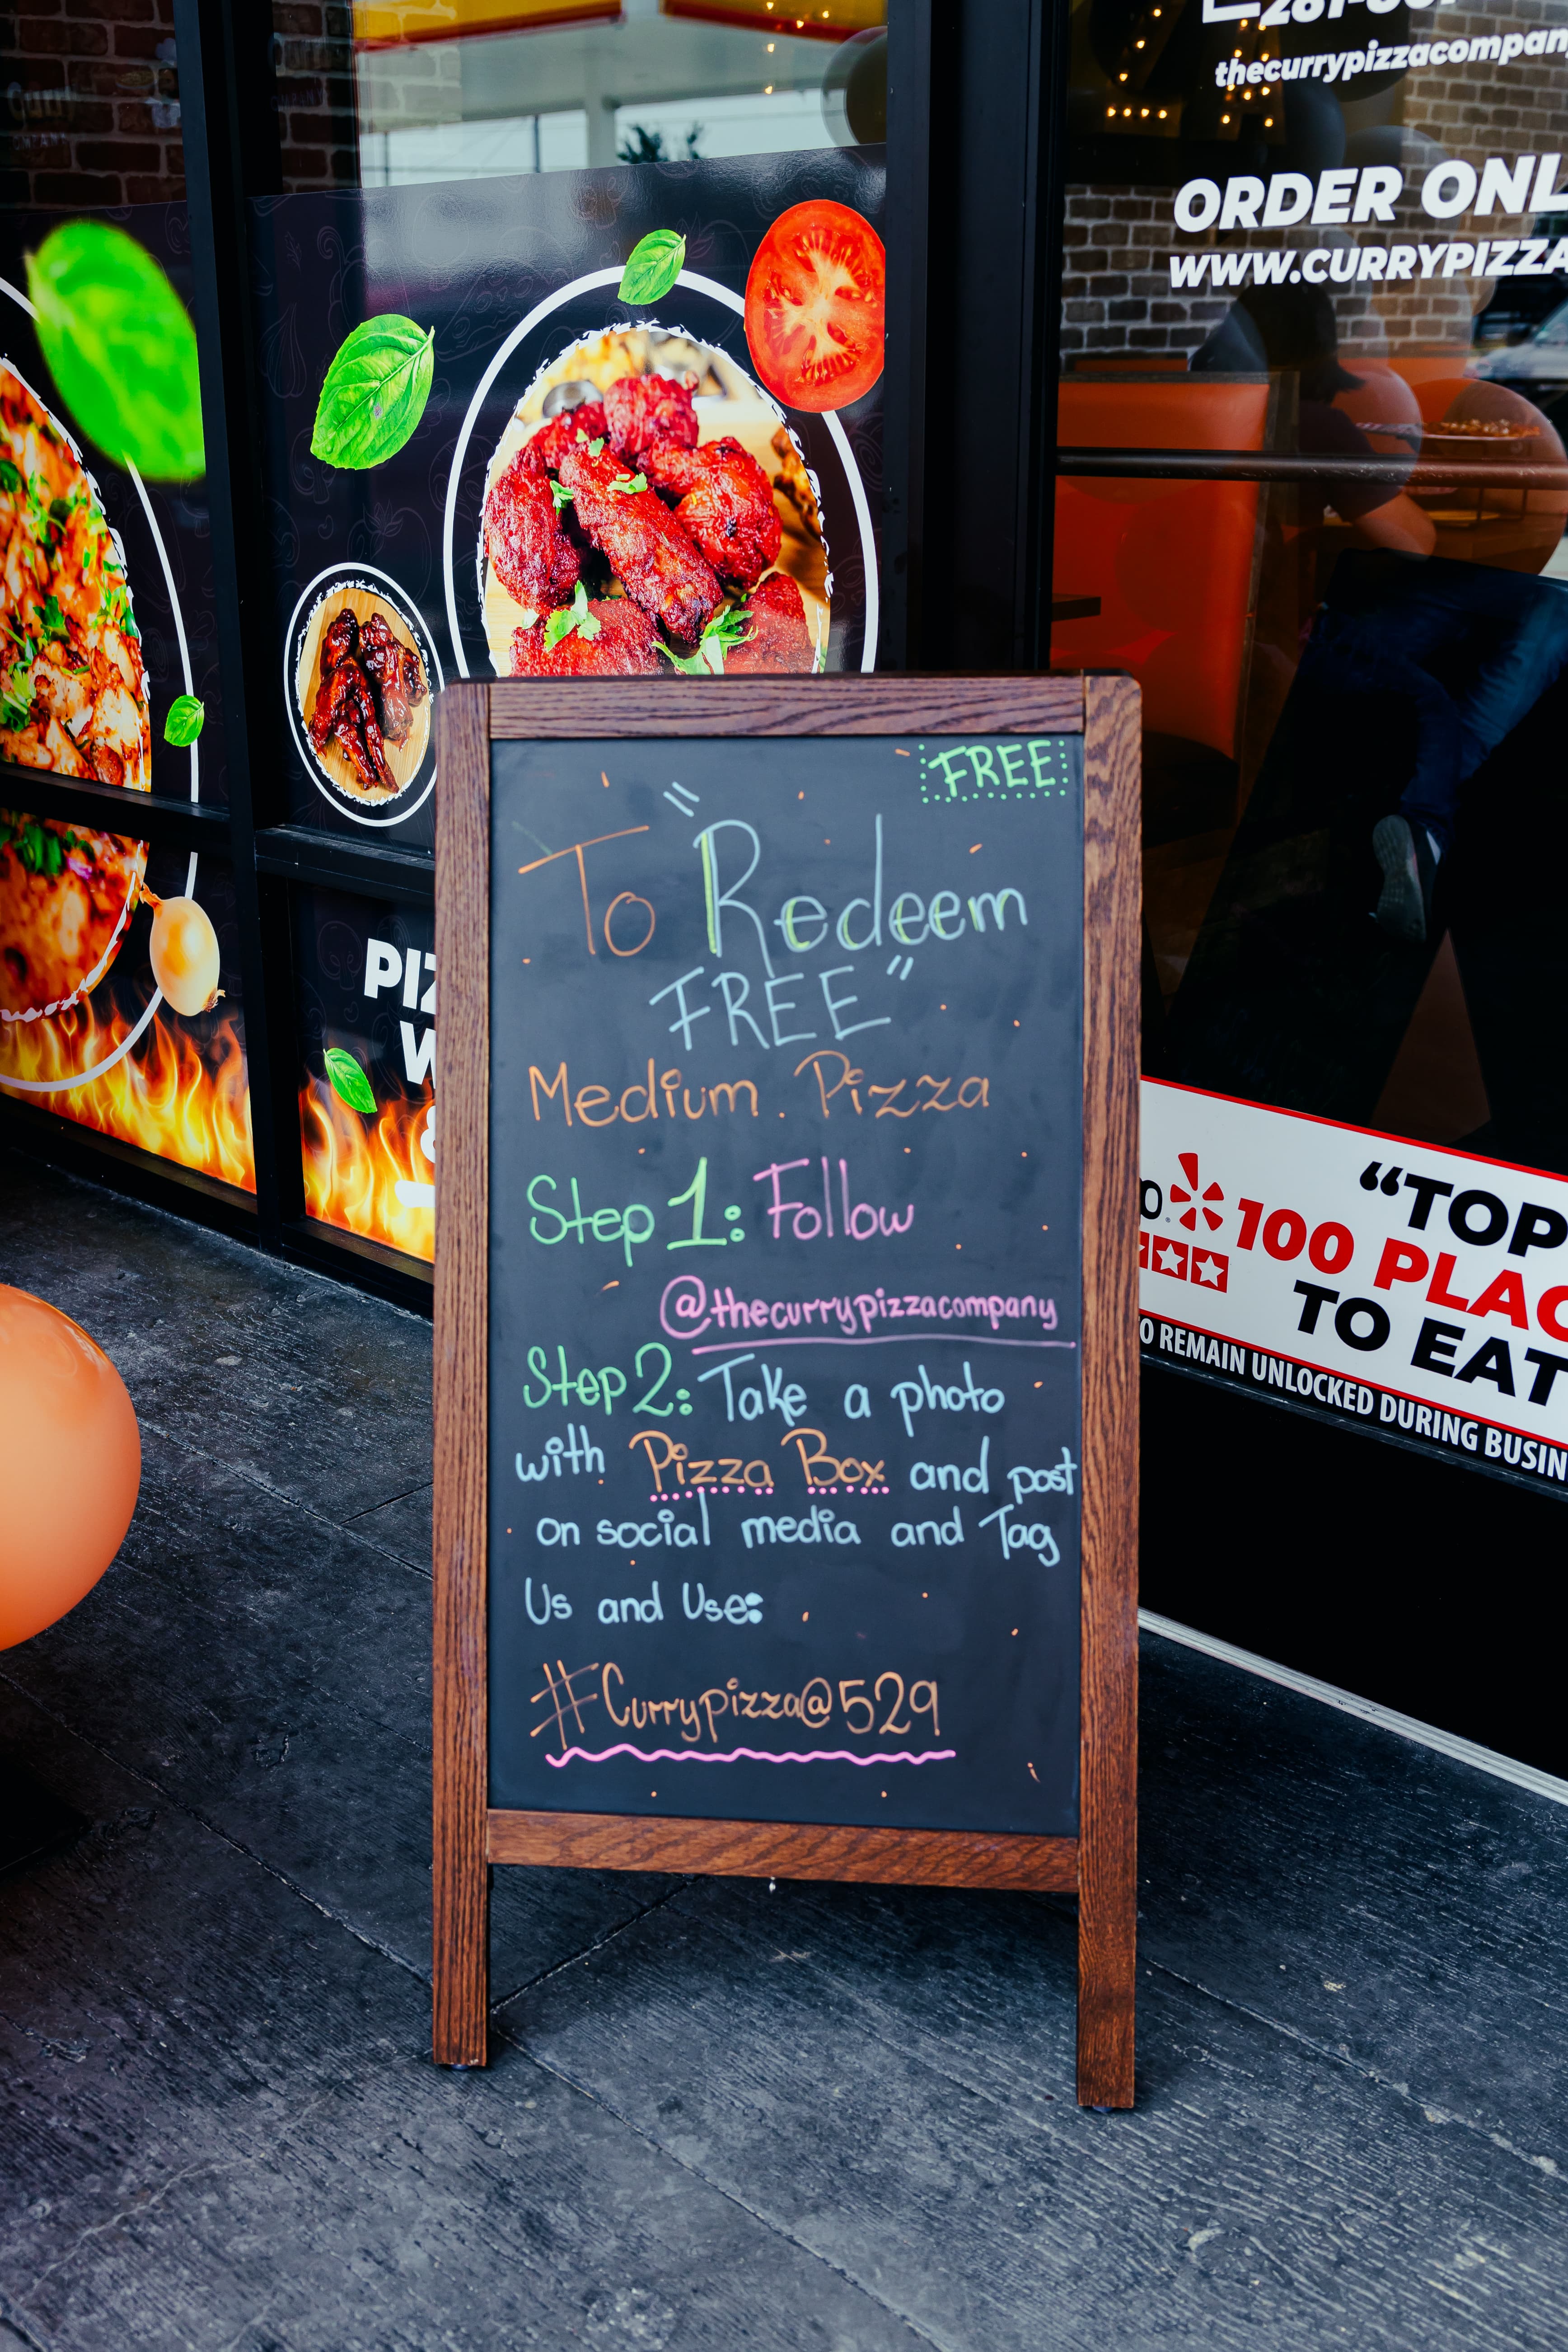 thecurrypizzacompan
ORDER ONL
WWW.CURRYPIZZA
FREE
To "Redeem
FREE"
Medium. Pizza
Step 1: Follow
@thecurrypizzacompany
Step 2: Take a photo
with Pizza Box and post
on social media and Tag
Us and Use:
#Currypizza@529
PIZ
W
&
"TOP
100 PLAC
TO EAT
O REMAIN UNLOCKED DURING BUSIN